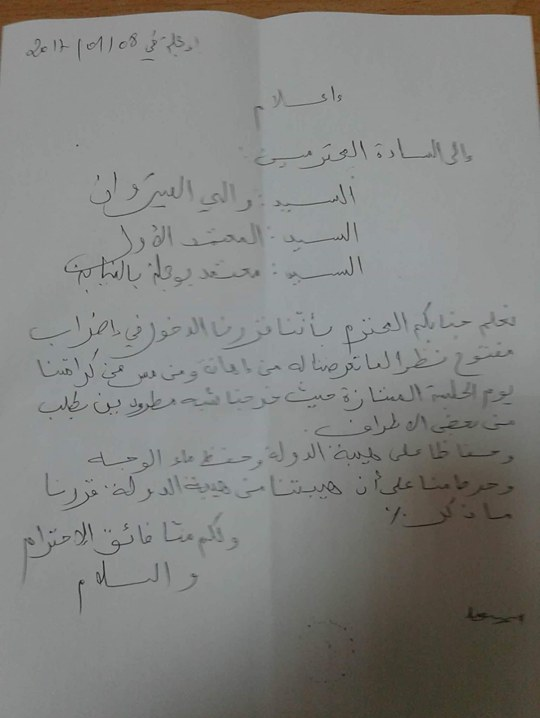 بوحجلة في 2017/01/08
إعلام
إلى السادة المحترمين:
السيد: والي القيروان
السيد: المعتمد الأول
السيد: معتمد بوحجلة بالنيابة
نعلم جنابكم المحترم بأننا قررنا الدخول في إضراب
مفتوح نظرا لما تعرضنا له من إهانة ومن مس من كرامتنا
يوم الجلسة الممتازة حيث خرجنا شبه مطرودين بطلب
من بعض الأطراف.
وحفاظا على هيبة الدولة وحفظ ماء الوجه
وحرصا منا على أن هيبتنا من هيبة الدولة: قررنا
ما ذكر./.
ولكم منا فائق الاحترام
والسلام